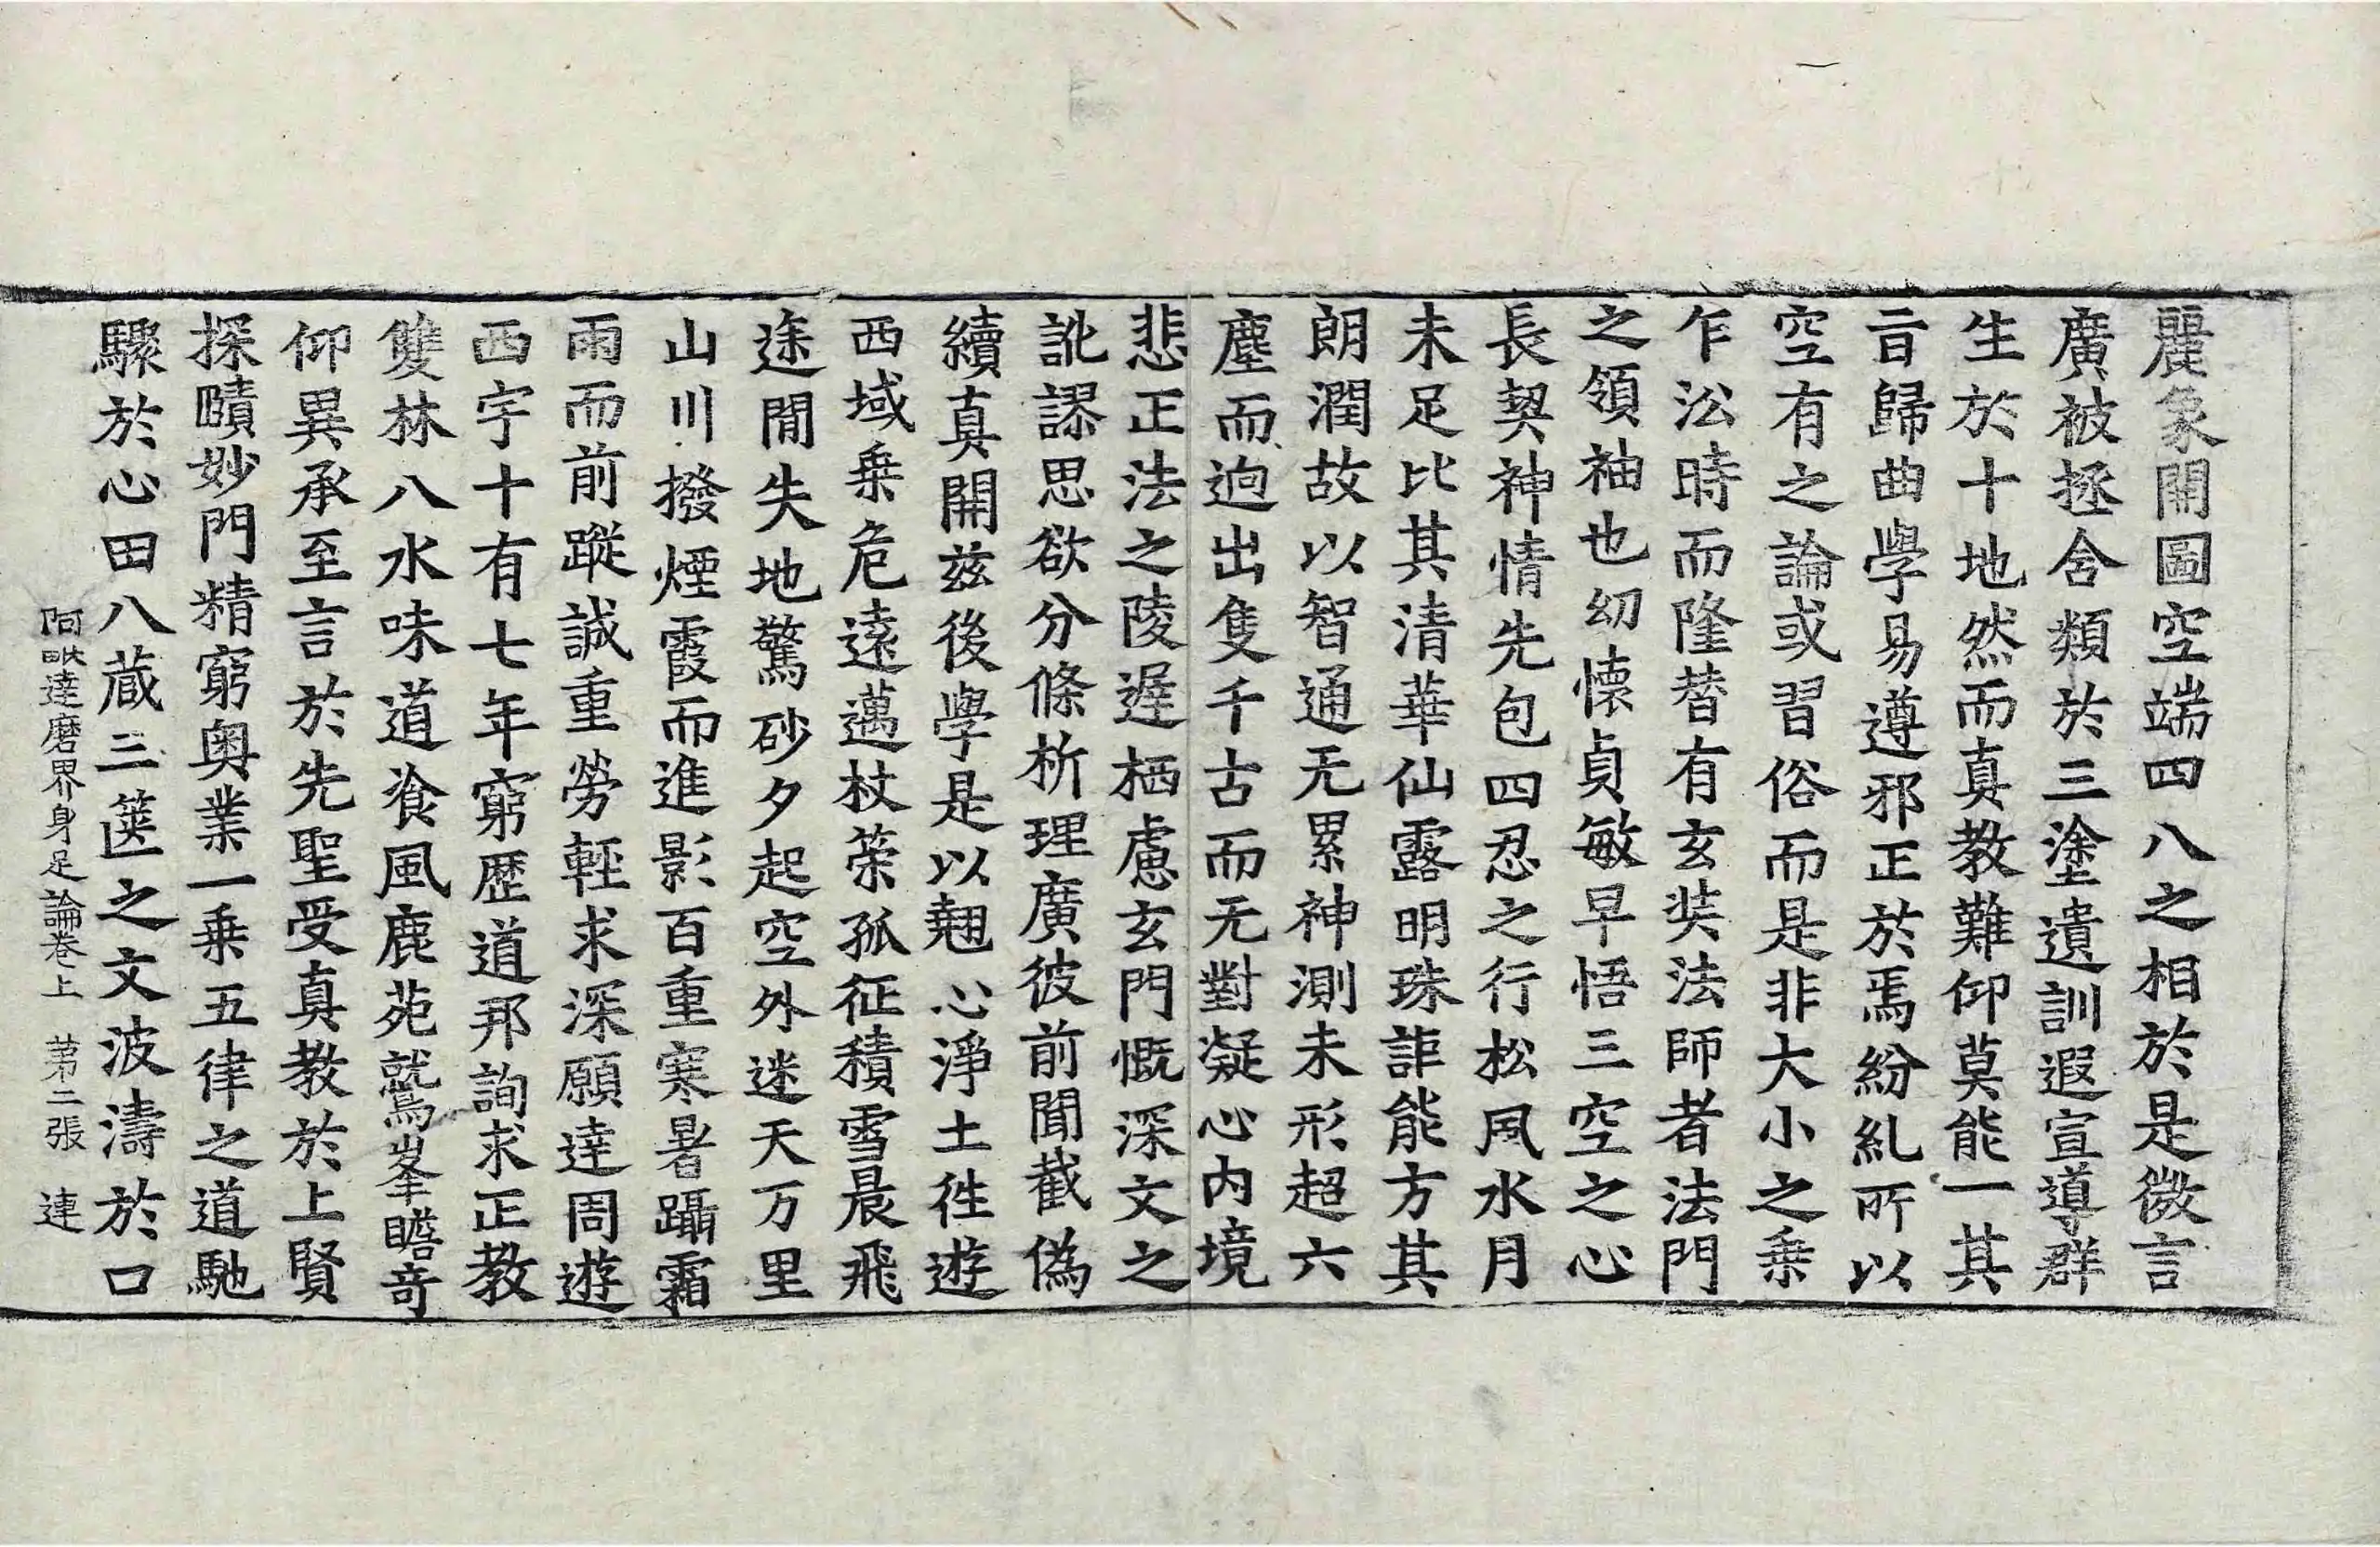 麗象開圖空端四八之相於是微言
廣被拯含類於三塗遺訓遐宣導群
生於十地然而真教難仰莫能一其
旨歸曲學易遵邪正於焉紛糺所以
空有之論或習俗而是非大小之乗
乍㳂時而隆替有玄奘法師者法門
之領袖也幼懐貞敏早悟三空之心
長契神情先包四忍之行松風水月
未足比其清華仙露明珠詎能方其
朗潤故以智通无累神測未形超六
塵而逈出隻千古而无對凝心内境
悲正法之陵遲栖慮玄門慨深文之
訛謬思欲分條析理廣彼前聞截偽
續真開兹後學是以翹心淨土徃遊
西域乗危遠邁杖策孤征積雪晨飛
途閒失地驚砂夕起空外迷天万里
山川撥煙霞而進影百重寒暑躡霜
雨而前蹤誠重勞輕求深願達周遊
西宇十有七年窮歷道邦詢求正教
雙林八水味道飡風鹿苑鷲峯瞻奇
仰異承至言於先聖受真教於上賢
探賾妙門精窮奥業一乗五律之道馳
驟於心田八蔵三篋之文波濤於口
阿毗達磨界身足論卷上 第二張 連